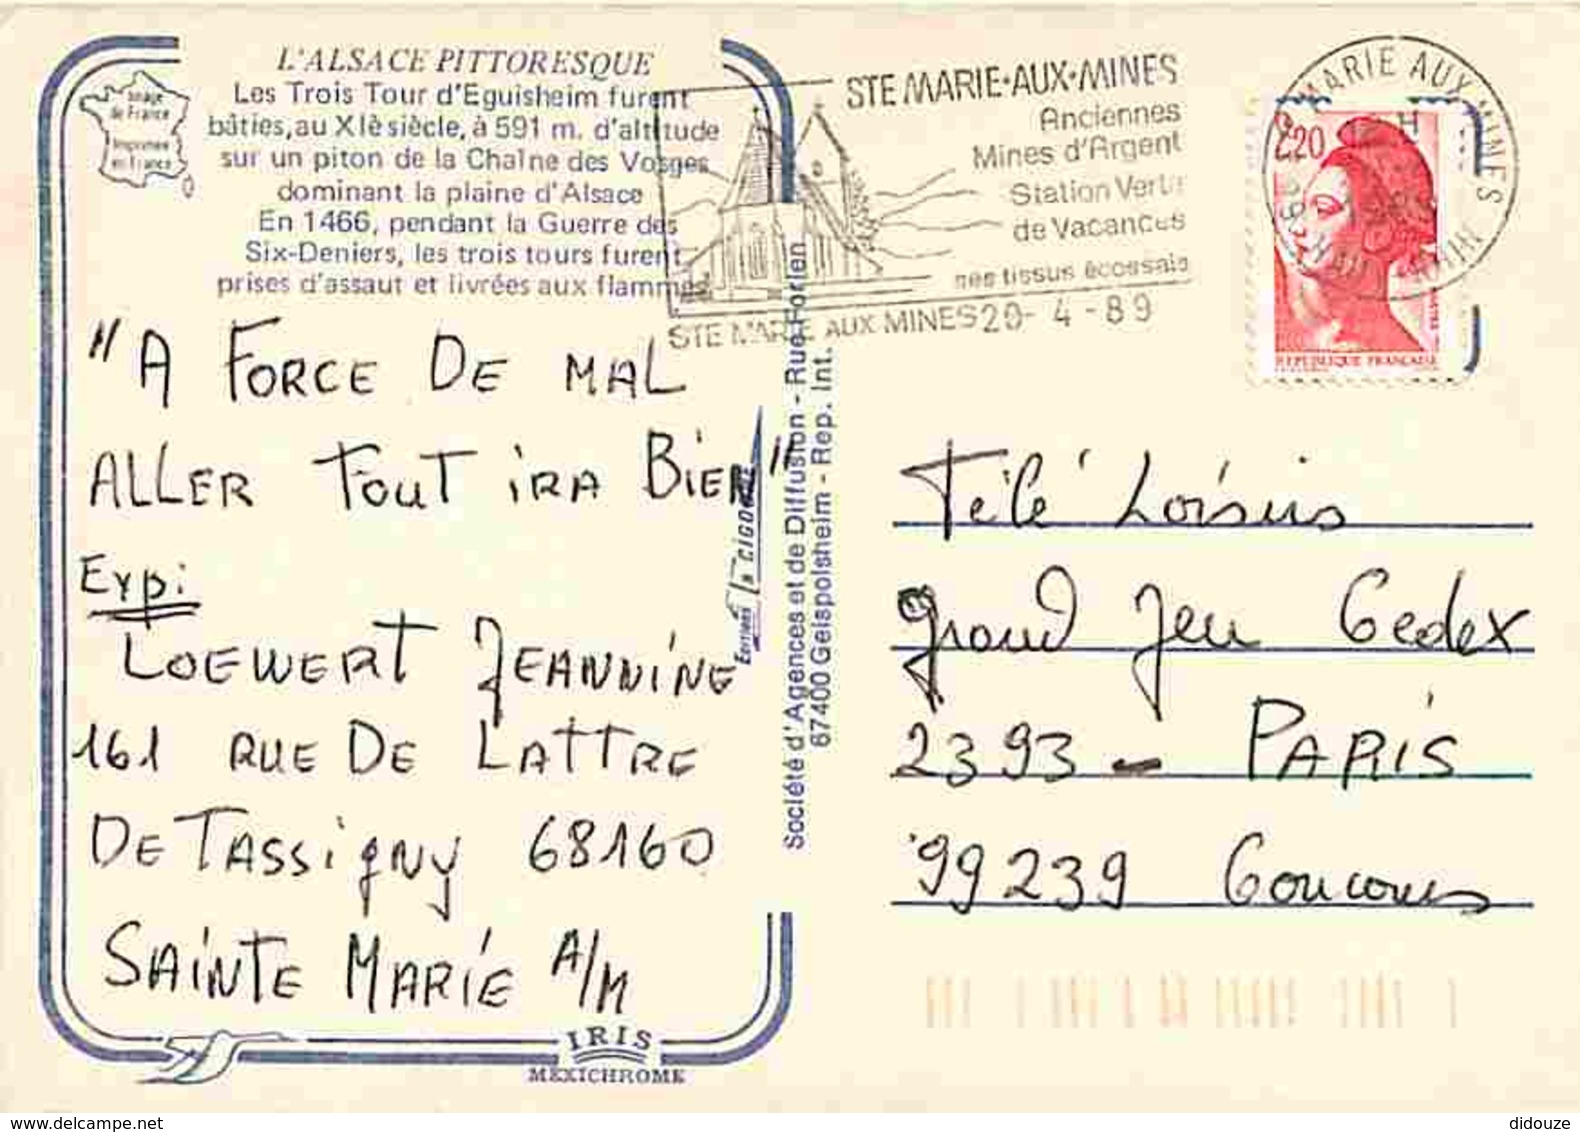 L'ALSACE PITTORESQUE
Les Trois Tour d'Eguisheim furent
bâties, au XIè siècle, à 591 m. d'altitude
sur un piton de la Chaîne des Vosges
dominant la plaine d'Alsace
En 1466, pendant la Guerre des
Six-Deniers, les trois tours furent
prises d'assaut et livrées aux flammes
Image
de France
Imprimée
en France
"A FORCE DE MAL
ALLER TOUT iRA BiEN"
Exp:
LOEWERT JEANNiNE
161 RUE DE LATTRE
DE TASSigNy 68160
SAiNTE MARiE A/M
IRIS
MEXICHROME
Editions la CIGOGNE
Société d'Agences et de Diffusion - Rue Forlen
67400 Geispolsheim - Rep. Int.
STE MARIE·AUX·MINES
Anciennes
Mines d'Argent
Station Verte
de Vacances
ses tissus écossais
STE MARIE AUX MINES 20- 4 -89
MARIE AUX MINES
12 H
RHIN
2,20
REPUBLIQUE FRANÇAISE
Télé Loisirs
grand Jeu Cedex
2393 - PARiS
99239 Concours
didouze